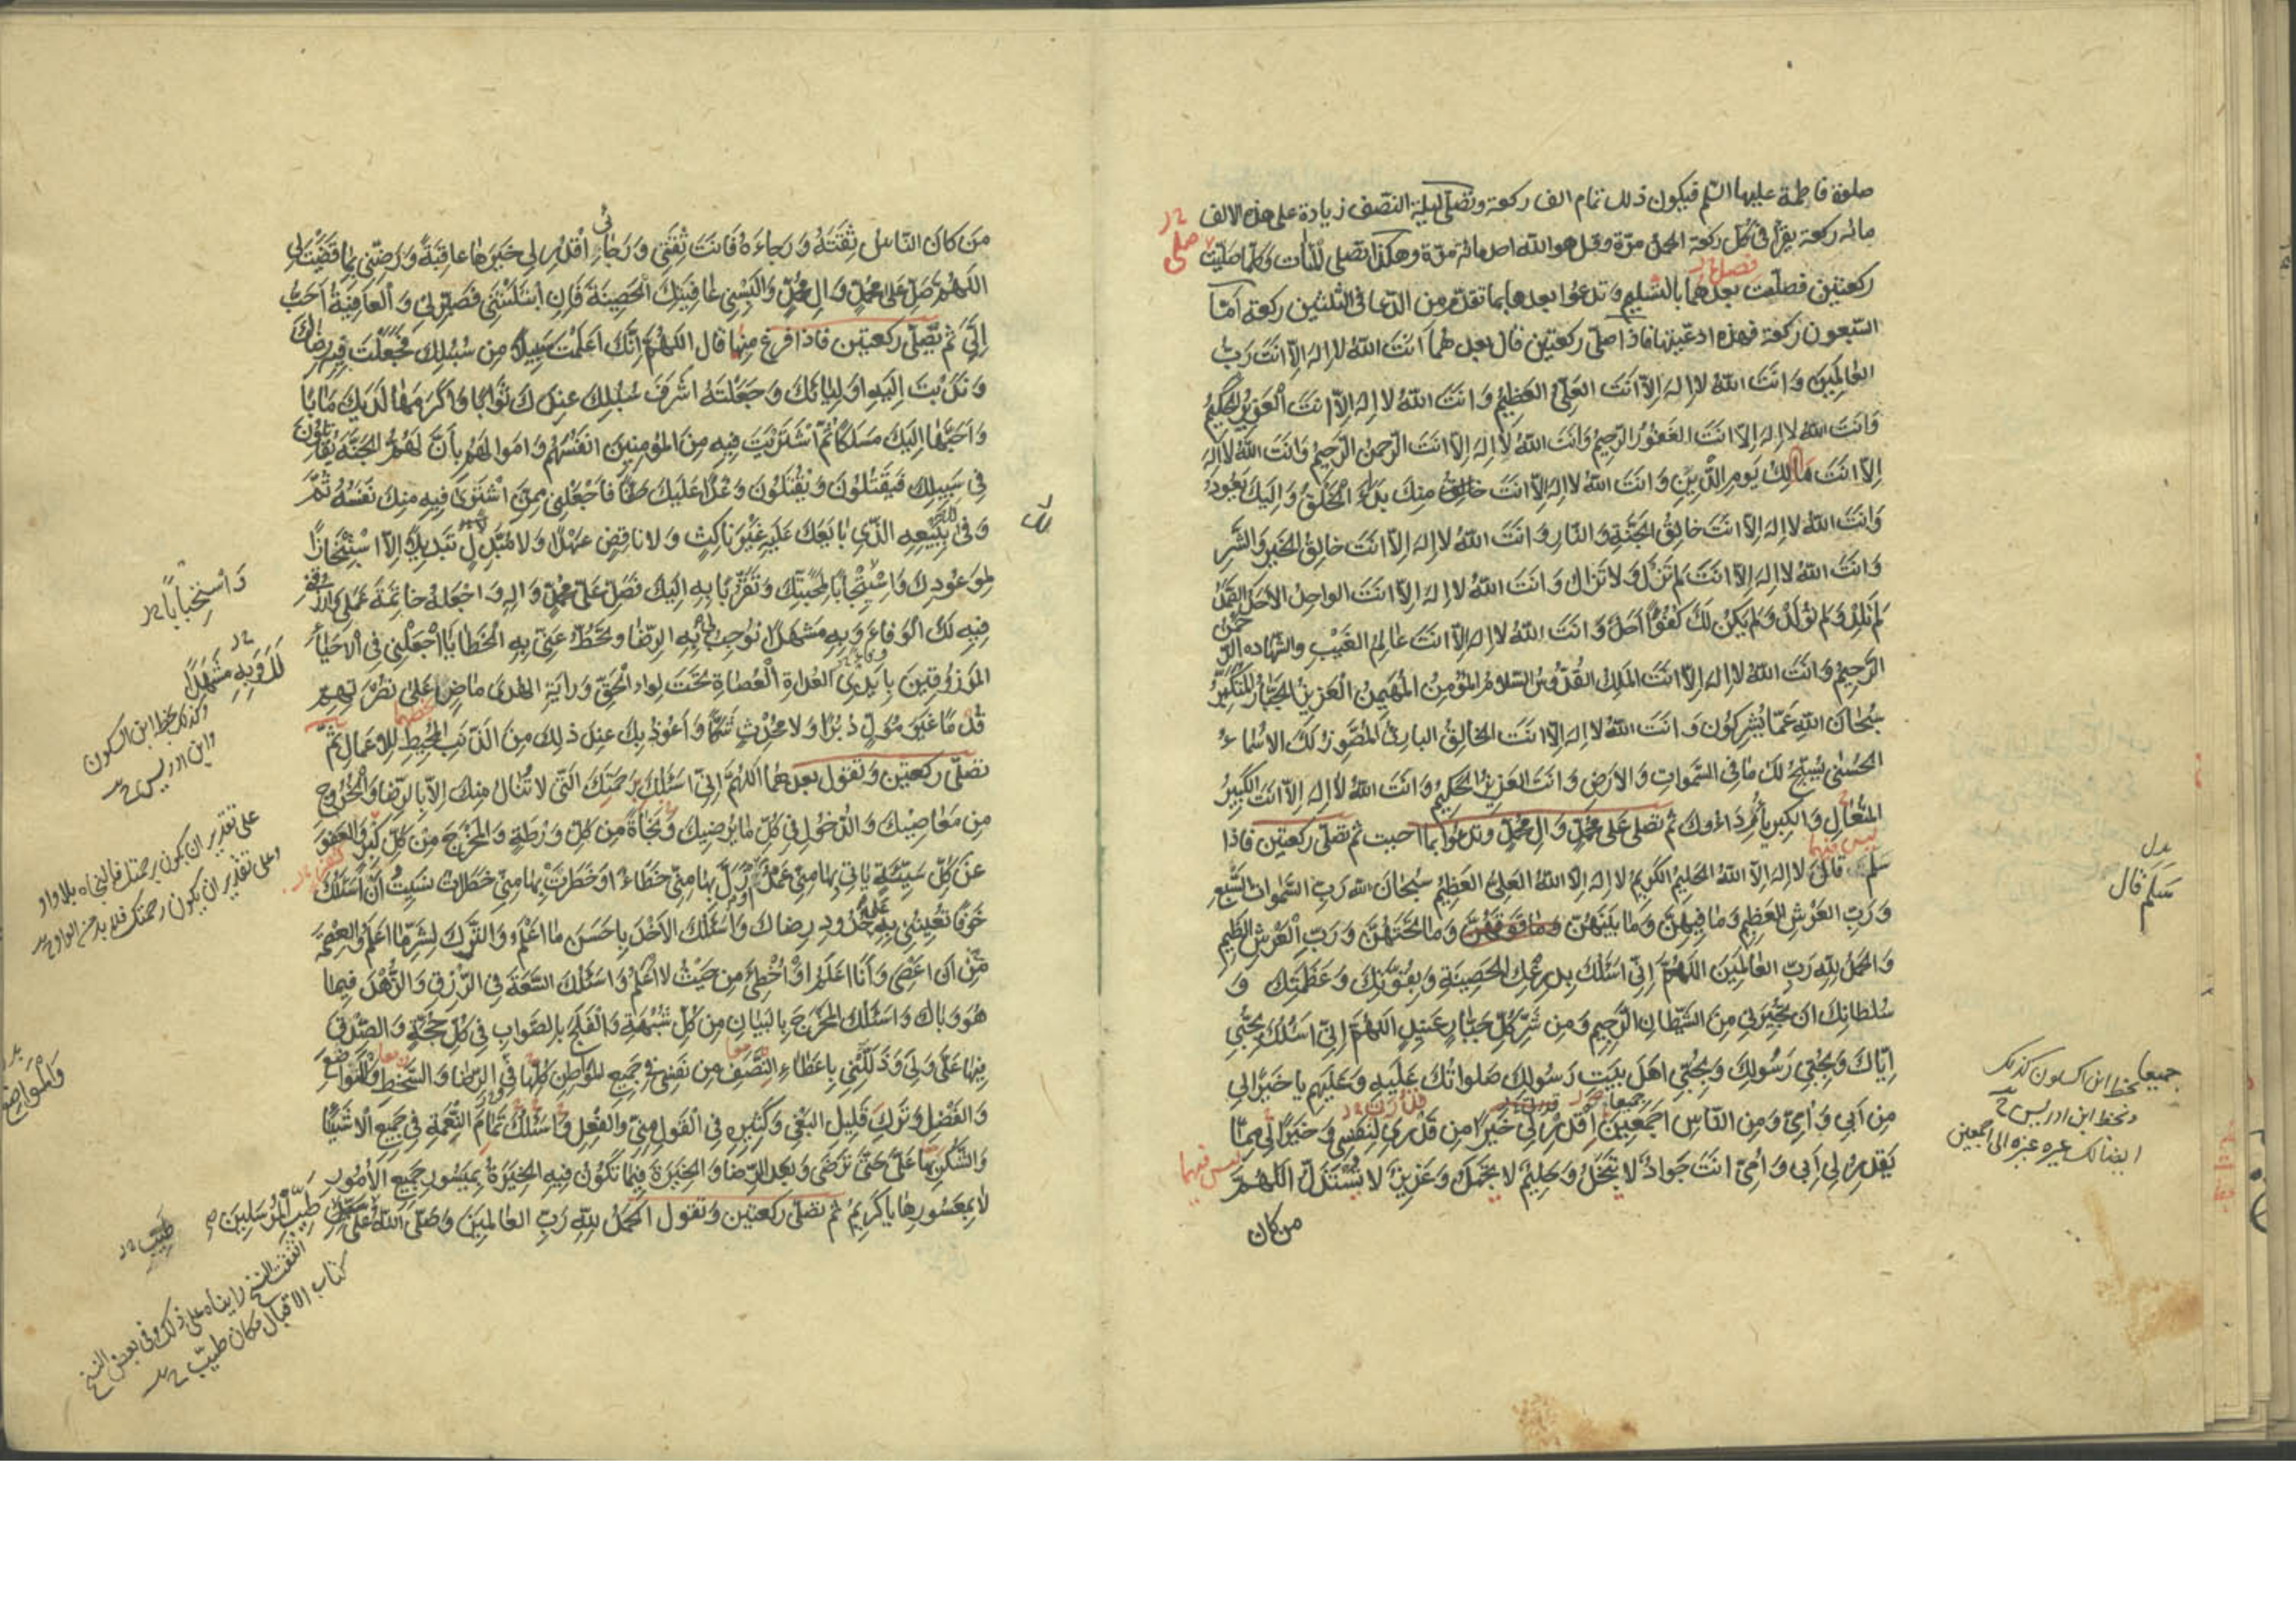 صلوة فاطمة عليها السّلم فيكون ذلك تمام الف ركعة وتصلّى ليلة النّصف زيادة على هذه الالف
مائه ركعة يقرأ فى كلّ ركعة الحمد مرّة وقل هو الله احد مائة مرّة وهكذا تصلى للمات وكلّما صلّيت
ركعتين فصلّت بعدهما بالتّسليم وتدعوا بعدها بما تقدّم من الدّعا فى الثلثين ركعة امّا
السّبعون ركعة فهذه ادعيتها فاذا صلّى ركعتين قال بعدهما اَنتَ اللهُ لا اِلهَ اِلاّ اَنتَ رَبُّ
العٰالَمينَ وَ اَنتَ اللهُ لا اِلهَ اِلاّ اَنتَ العَلِيُّ العَظيمُ وَ انتَ اللهُ لا اِلهَ اِلاّ اَنتَ الْعَزيزُ الحَكيمُ
وَ اَنتَ اللهُ لا اِلهَ اِلاّ انتَ الغَفُورُ الرّحيمُ وَ اَنتَ اللهُ لا اِلهَ اِلاّ اَنتَ الرّحمنُ الرّحيمُ وَ انتَ اللهُ لا اِلهَ
اِلاّ اَنتَ مٰالِكُ يَومِ الدّينِ وَ انتَ اللهُ لا اِلهَ اِلاّ انتَ خٰالِقُ مِنكَ بَدءُ الخَلقِ وَ اِلَيكَ يَعُودُ
وَ اَنتَ اللهُ لا اِلهَ اِلاّ اَنتَ خالِقُ الجَنَّةِ وَ النّارِ وَ انتَ اللهُ لا اِلهَ اِلاّ انتَ خالِقُ الخَيرِ وَ الشَّرِّ
وَ انتَ اللهُ لا اِلهَ اِلاّ انتَ لَم تَزَلْ وَ لا تَزالُ وَ انتَ اللهُ لا اِلهَ اِلاّ انتَ الواحِدُ الاَحَدُ الصَّمَدُ
لَم تَلِدْ وَ لَم تُولَدْ وَ لَم يَكُنْ لَكَ كُفُوًا اَحَدٌ وَ انتَ اللهُ لا اِلهَ اِلاّ انتَ عٰالِمُ الغَيْبِ والشّهاده الرّحمن
الرّحيمُ وَ انتَ اللهُ لا اِلهَ اِلاّ انتَ المَلِكُ القُدُّوسُ السّلامُ المُؤمِنُ المُهَيمِنُ العَزيزُ الجَبّارُ المُتَكَبِّرُ
سُبحٰانَ اللهِ عَمّا يُشرِكُون وَ انتَ اللهُ لا اِلهَ اِلاّ انتَ الخٰالِقُ البارِئُ المُصَوِّرُ لَكَ الاَسماءُ
الحُسنى يُسَبِّحُ لَكَ ما فى السَّموٰاتِ وَ الاَرضِ وَ انتَ العَزيزُ الحَكيمُ وَ انتَ اللهُ لا اِلهَ اِلاّ انتَ الكَبيرُ
المُتَعٰالِ وَ الكِبرِياءُ رِدَاءُوكَ ثم تصلى على محمّدٍ وَ الِ محمّدٍ وتدعوا بما احببت ثم تصلّى ركعتين فاذا
سلم قال لا اِلهَ اِلاّ اللهُ الحَليمُ الكَريمُ لا اِلهَ اِلاّ اللهُ العَلِيُّ العَظيمُ سُبحانَ الله رَبِّ السَّموات السَّبعِ
وَ رَبِّ العَرشِ العَظيمِ وَ ما فيهِنَّ وَ مٰا بَينَهُنّ وَ مٰا فَوقَهُنَّ وَ مٰا تَحتَهُنَّ وَ رَبِّ الْعَرشِ العَظيمِ
وَ الحَمدُ لِلّهِ رَبِّ العٰالَمينَ اللهُمَّ اِنّى اَسئَلُكَ بِدِرعِكَ الحَصينَةِ وَ بِقُوَّتِكَ وَ عَظَمَتِكَ وَ
سُلطانِكَ ان تُجيرَنى مِنَ الشَّيطانِ الرَّجيمِ وَ مِن شَرِّ كُلِّ جَبّارٍ عَنيدٍ اللهُمَّ اِنّى اَسئَلُكَ بِحُبّى
اِيّاكَ وَ بِحُبّى رَسُولِكَ وَ بِحُبّى اهلَ بَيتِ رَسُولِكَ صَلواتُكَ عَلَيهِ وَ عَلَيهِم يا خَيرًا لى
مِن اَبى وَ اُمّى وَ مِن النّاسِ اَجمَعينَ اُقدُر لى خَيرًا مِن قَدْرى لِنَفسى وَ خَيرًا لى مِمّا
يَقدِرُ لى اَبى وَ اُمّى اَنتَ جَوادٌ لا يَبخَلُ وَ حَليمٌ لا يَجهَلُ وَ عَزيزٌ لا يُستَذَلُّ اللهُمَّ
من كان
بدل
سَلّم قال
جميعا بخط ابن السكون كذلك
وبخط ابن ادريس
مَن كانَ النّاسُ ثِقَتَهُ وَ رَجاءَهُ فَانتَ ثِقَتى وَ رَجائى اُقدُر لى خَيرَها عاقِبَةً وَ رَضِّنى بِما قَضَيتَ لى
اللهُمَّ صَلِّ عَلى محمّدٍ وَ الِ محمّدٍ وَ اَلبِسْنى عافِيَتَكَ الحَصينَةَ فَاِنِ ابتَلَيتَنى فَصَبِّرنى وَ العافِيَةُ اَحَبُّ
اِلَىَّ ثم تصلّى ركعتين فاذا فرغ منها قال اللهُمَّ اِنَّكَ اَعلَمتَ سَبيلاً مِن سُبُلِكَ فَجَعَلتَ فيهِ رِضاكَ
وَ نَدَبتَ اِلَيهِ اَولِيائَكَ وَ جَعَلتَهُ اَشرَفَ سُبُلِكَ عِندَكَ ثَوابًا وَ اَكرَمَها لَدَيكَ مَاٰبًا
وَ اَحَبَّها اِلَيكَ مَسلَكًا ثُمَّ اشتَرَيتَ فيهِ مِنَ المُؤمِنينَ اَنفُسَهُم وَ اَموالَهُم بِاَنَّ لَهُمُ الجَنَّةَ يُقاتِلُونَ
فى سَبيلِكَ فَيَقتُلُونَ وَ يُقتَلُونَ وَعْدًا عَلَيكَ حَقًّا فَاجعَلنى مِمَّنِ اشتَرىٰ فيهِ مِنكَ نَفسَهُ ثُمَّ
وَفى بِبَيعِهِ الَّذى بايَعَكَ عَلَيهِ غَيرَ ناكِثٍ وَ لا ناقِضٍ عَهدًا وَ لا مُبَدِّلٍ تَبديلاً اِلاَّ استِنجازًا
لِمَوعُودِكَ وَ استيجابًا لِمَحَبَّتِكَ وَ تَقَرُّبًا بِهِ اِلَيكَ فَصَلِّ عَلى محمّدٍ وَ الِهِ وَ اجعَلهُ خاتِمَةَ عَمَلى وَ ارزُقنى
فيهِ لَكَ الوَفاءَ وَ بِهِ مَشهَدًا تُوجِبُ لى بِهِ الرِّضا وَ تَحُطُّ عَنّى بِهِ الخَطايا اجعَلنى فى الاَحياءِ
المَرزُوقينَ بِاَيدِى العُداةِ العُصاةِ تَحتَ لِواءِ الحَقِّ وَ رايَةِ الهُدى ماضٍ عَلى نُصرَتِهِم
قُدُمًا غَيرَ مُوَلٍّ دُبُرًا وَ لا مُحدِثٍ شَكًّا وَ اَعُوذُ بِكَ عِندَ ذلِكَ مِنَ الذَّنبِ المُحبِطِ لِلاَعمالِ ثمّ
تصلّى ركعتين وتقول بعدهما اللهُمَّ اِنّى اَسئَلُكَ بِرَحمَتِكَ الَّتى لا تُنالُ مِنكَ اِلاّ بِالرِّضا وَ الخُرُوجِ
مِن مَعاصيكَ وَ الدُّخُولِ فى كُلِّ ما يُرضيكَ وَ نَجاةً مِن كُلِّ وَرطَةٍ وَ المَخرَجَ مِن كُلِّ كَبيرٍ وَ العَفوَ
عَن كُلِّ سَيِّئَةٍ يَأتى بِها مِنّى عَمدٌ اَو زَلَّ بِها مِنّى خَطاءٌ اَو خَطَرَتْ بِها مِنّى خَطَراتٌ نَسيتُ اَن اَسئَلُكَ
خَوفًا تُعينُنى بِهِ عَلىٰ حُدُودِ رِضاكَ وَ اَسئَلُكَ الاَخذَ بِاَحسَنِ ما اَعلَمُ وَ التَّركَ لِشَرِّ ما اَعلَمُ وَ العِصمَةَ
مِن اَن اَعصىَ وَ اَنَا اَعلَمُ اَو اُخطِئَ مِن حَيثُ لا اَعلَمُ وَ اَسئَلُكَ السَّعَةَ فى الرِّزقِ وَ الزُّهدَ فيما
هُوَ وَبالٌ وَ اَسئَلُكَ المَخرَجَ بِالبَيانِ مِن كُلِّ شُبهَةٍ وَ الفَلَجَ بِالصَّوابِ فى كُلِّ حُجَّةٍ وَ الصِّدقَ
فيها عَلَىَّ وَ لى وَ ذَلِّلنى بِاِعطاءِ النَّصَفِ مِن نَفسى فى جَميعِ المَواطِنِ كُلِّها فى الرِّضا وَ السَّخَطِ وَ التَّواضُعِ
وَ الفَضلِ وَ تَركِ قَليلِ البَغىِ وَ كَثيرِهِ فى القَولِ مِنّى وَ الفِعلِ وَ اَسئَلُكَ تَمامَ النِّعمَةِ فى جَميعِ الاَشياءِ
وَ الشُّكرَ بِها عَلَىَّ حَتّى تَرضى وَ بَعدَ الرِّضا وَ الخِيَرَةَ فيما تَكُونُ فيهِ الخِيَرَةُ بِمَيسُورِ جَميعِ الاُمُورِ
لا بِمَعسُورِها يا كَريمُ ثم تصلّى ركعتين وتقول الحَمدُ لِلّهِ رَبِّ العالَمينَ وَ صَلَّى اللهُ عَلى طَيِّبِ المُرسَلينَ
وَ استِحبابًا
لَكَ وَ بِهِ مَشهَدًا
وكذلك بخط ابن السكون
وابن ادريس
على تقدير ان يكون برحمتك فالنجاه بلا واو
وعلى تقدير ان يكون رحمتك فلا بد من الواو
طَيِّب
كتاب الاقبال مكان طيّب